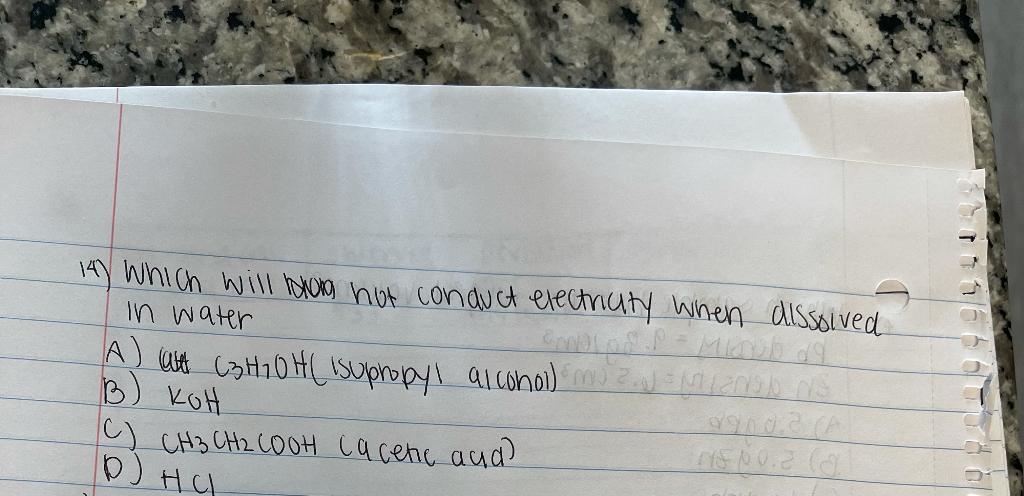 14) Which will not conduct electricity when dissolved
in water
A) C3H7OH (isopropyl alcohol)
B) KOH
C) CH3CH2COOH (acetic acid)
D) HCl